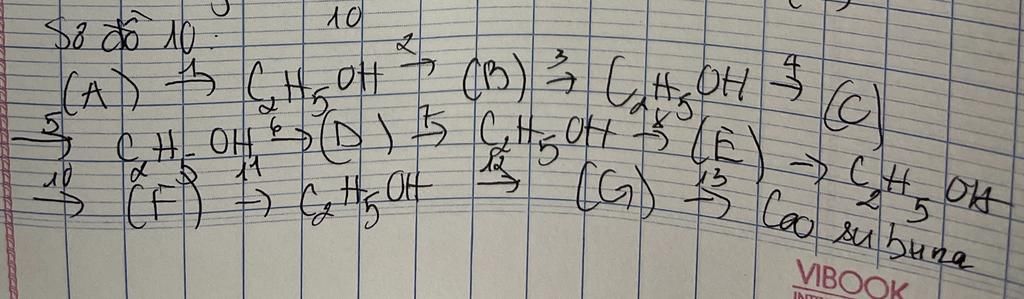 10
Sơ đồ 10:
(A) 1→ C2H5OH 2→ (B) 3→ C2H5OH 4→ (C)
5→ C2H5OH 6→ (D) 7→ C2H5OH 8→ (E) → C2H5OH
10→ (F) 11→ C2H5OH 12→ (G) 13→ Cao su buna
VIBOOK